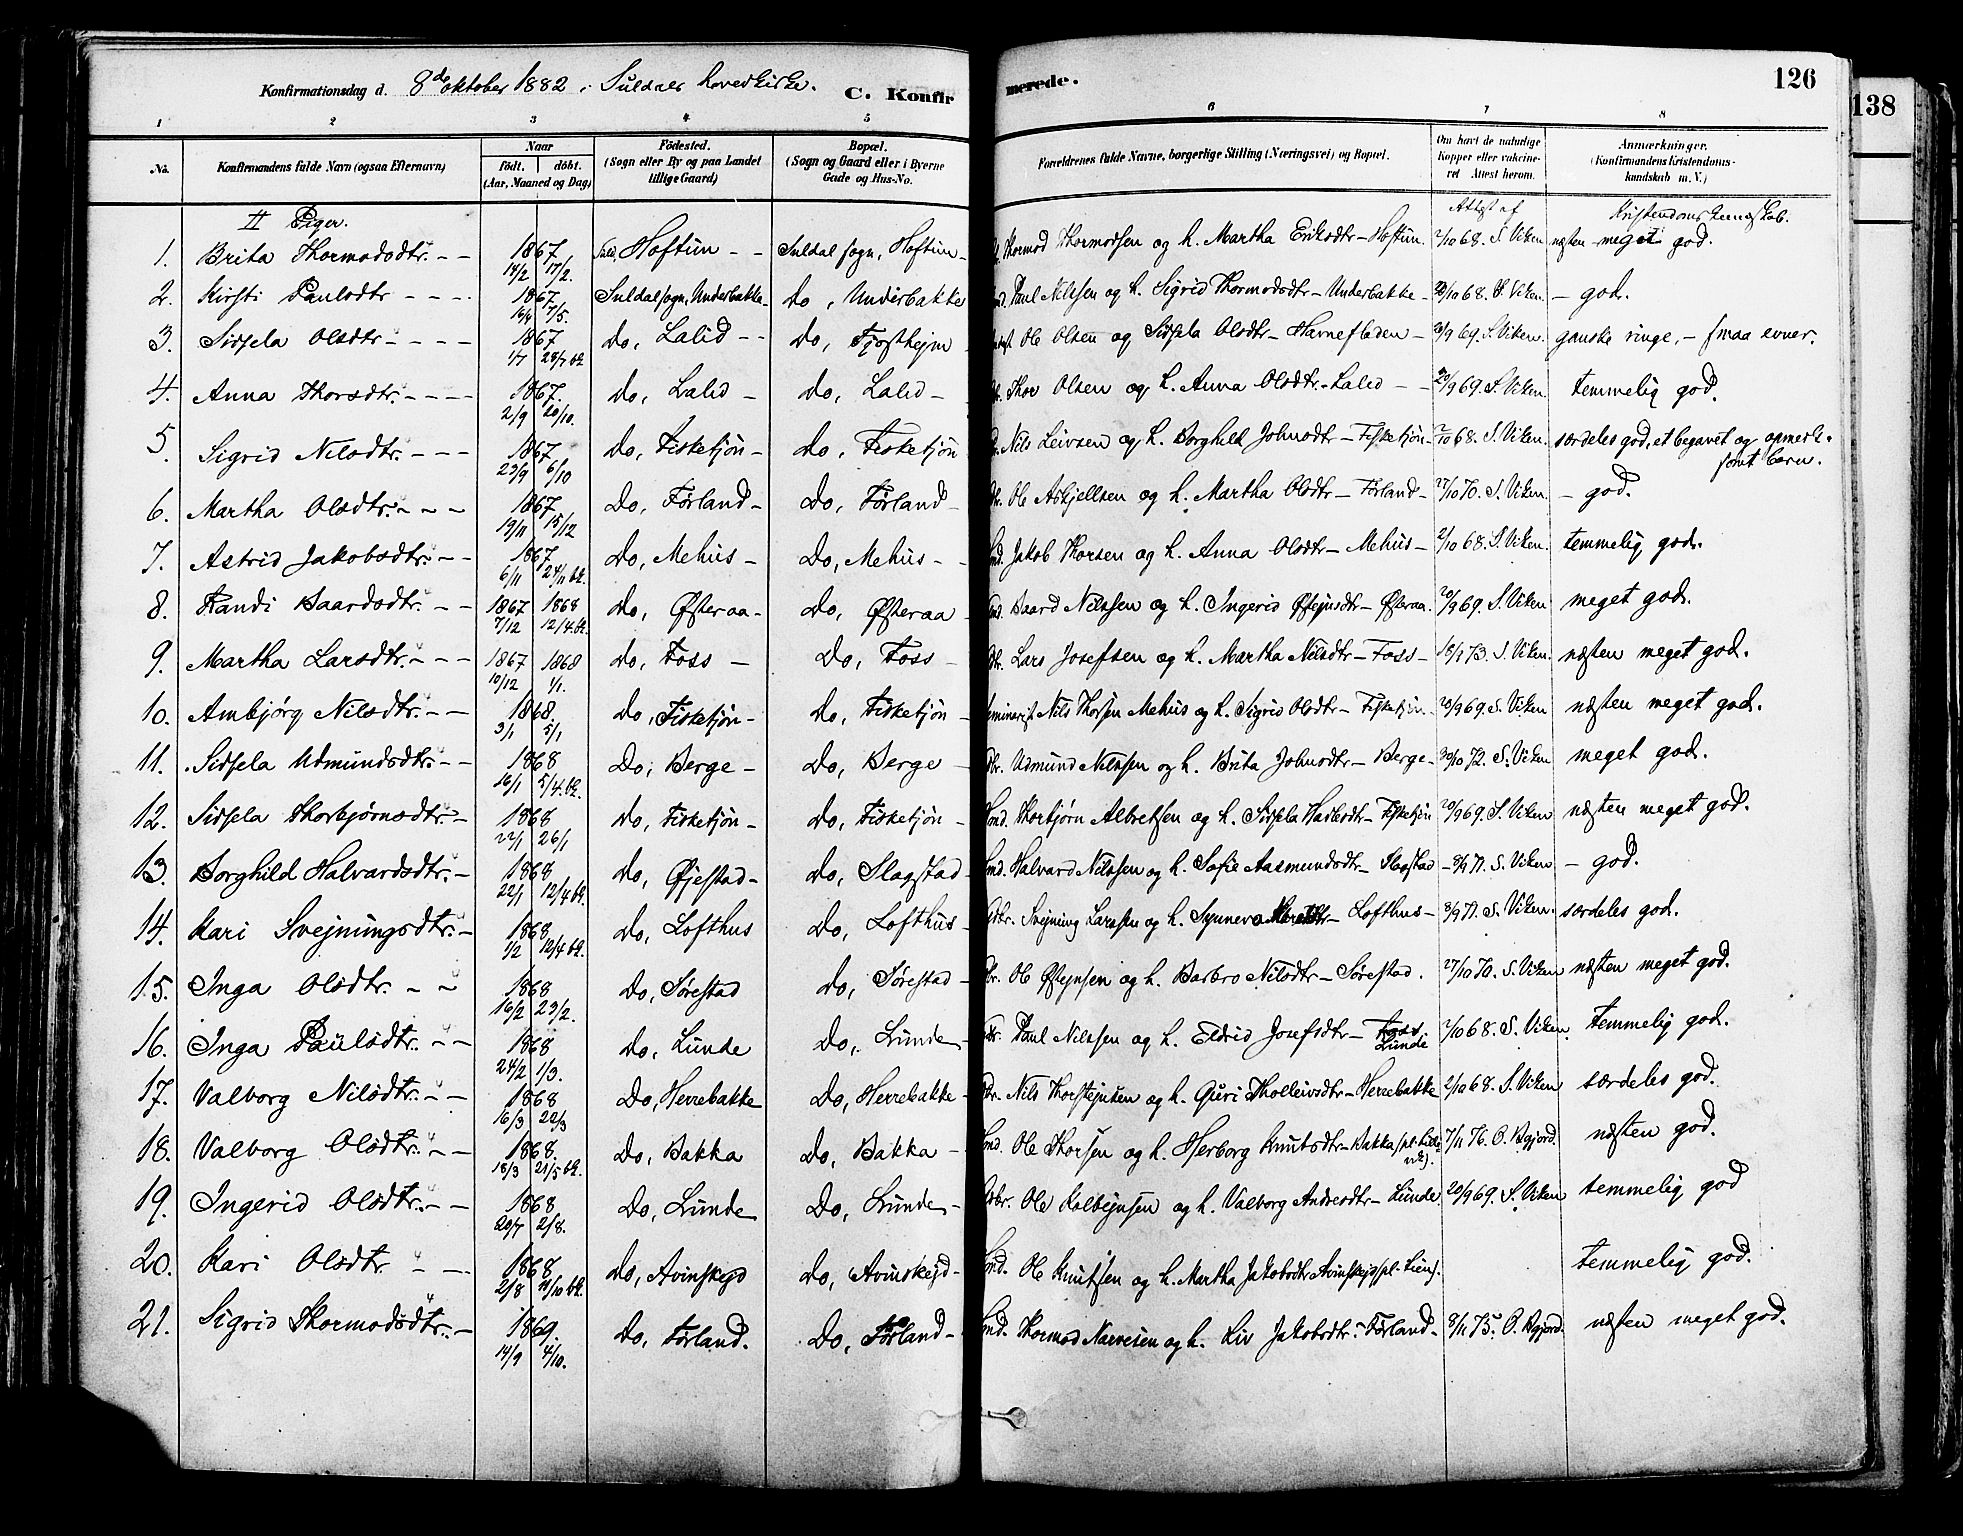 Konfirmationsdag d. 8de oktober 1882 i Suldals hovedkirke. C. Konfirmerede. 126
138
1 2 3 4 5 6 7 8
No. Konfirmandens fulde Navn (ogsaa Efternavn) Naar født. døbt. (Aar, Maaned og Dag) Fødested. (Sogn eller By og paa Landet tillige Gaard) Bopæl. (Sogn og Gaard eller i Byerne Gade og Hus-No. Forældrenes fulde Navne, borgerlige Stilling (Næringsvei) og Bopæl. Om havt de naturlige Kopper eller vaccineret Attest herom. Anmærkninger. (Konfirmandens Kristendomskundskab m. V.)
II Piger. Attest af Kristendomskundskab.
1. Brita Thormodsdtr. 1867 14/2 17/2. Suld. Hoftun Suldal sogn, Hoftun Thormod Thormodsen og h. Martha Eriksdtr - Hoftun. 2/10 68. S. Viken næsten meget god.
2. Kirsti Paulsdtr 1867 16/4 7/5. Suldal sogn, Underbakke do, Underbakke Paul Nilssen og h. Sigrid Thormodsdtr - Underbakke - /10 68. S. Viken. - god.
3. Sidsela Olsdtr 1867 1/7 28/7 bk. do, Lalid do, Fjosthejm Ole Olsen og Sidsela Olsdtr - Havnefladen - 20/9 69. S. Viken. ganske ringe, - smaa evner.
4. Anna Thorsdtr. 1867. 2/9 20/10. do, Lalid do, Lalid Thor Olsen og h. Anna Olsdtr. - Lalid 20/9 69. S. Viken. temmelig god.
5. Sigrid Nilsdtr. 1867 23/9 6/10 do, Fisketjøn do, Fisketjøn Nils Leivsen og h. Borghild Johnsdtr - Fisketjøn 2/10 68. S. Viken. særdeles god, et begavet og opmerksomt barn.
6. Martha Olsdtr. 1867 19/11 15/12 do, Førland do, Førland Ole Askjellsen og h. Martha Olsdtr - Førland - 27/10 70. S. Viken. - god.
7. Astrid Jakobsdtr. 1867 6/11 24/11 bk. do, Mehus do, Mehus Jakob Thorsen og h. Anna Olsdtr - Mehus - 2/10 68. S. Viken. temmelig god.
8. Randi Baardsdtr. 1867 1868 7/12 12/4. bk. do, Østeraa do, Østeraa Baard Nilssen og h. Ingerid Østejnsdtr - Østeraa. 20/9 69. S. Viken meget god.
9. Martha Larsdtr. 1867 1868 10/12 1/1. do, Foss do, Foss Lars Josefsen og h. Martha Nilsdtr - Foss - 18/1 73. S. Viken. næsten meget god.
10. Ambjørg Nilsdtr. 1868 3/1 5/1 do, Fisketjøn do, Fisketjøn seminarist Nils Thorsen Mehus og h. Sigrid Olsdtr - Fisketjøn 20/9 69. S. Viken næsten meget god.
11. Sidsela Udmundsdtr. 1868 16/1 5/4. bk. do, Berge do, Berge Udmund Nilssen og h. Brita Johnsdtr - Berge - 30/10 72. S. Viken meget god.
12. Sidsela Thorbjørnsdtr. 1868 22/1 26/1 do, Fisketjøn do, Fisketjøn Thorbjørn Albretsen og h. Sidsela Hadlesdtr - Fisketjøn 20/9 69. S. Viken næsten meget god.
13. Borghild Halvardsdtr. 1868 22/1 12/4 bk. do, Øjestad do, Slagstad Halvard Nilssen og h. Sofie Aasmundsdtr - Slagstad - 8/9 71. S. Viken - god.
14. Kari Svejnungsdtr. 1868 1/2 12/4 bk. do, Lofthus do, Lofthus Svejnung Larssen og h. Synneva - Lofthus - 8/9 71. S. Viken. særdeles god.
15. Inga Olsdtr. 1868 16/2 23/2. do, Sørestad do, Sørestad Ole Østejnsen og h. Barbro Nilsdtr - Sørestad. 27/10 70. S. Viken næsten meget god.
16. Inga Paulsdtr. 1868 24/2 1/3. do, Lunde do, Lunde Paul Nilssen og h. Eldrid Josefsdtr - Foss Lunde 2/10 68. S. Viken. temmelig god.
17. Valborg Nilsdtr. 1868 16/3 22/3 do, Herrebakke do, Herrebakke Nils Thorstejnsen og h. Guri Tholleivsdtr - Herrebakke 2/10 68. S. Viken særdeles god.
18. Valborg Olsdtr. 1868. 18/3 21/5 bk. do, Bakka do, Bakka Ole Thorsen og h. Herborg Knutsdtr - Bakka 7/11 76. O. Bgjord. næsten god.
19. Ingerid Olsdtr. 1868 20/7 2/8. do, Lunde do, Lunde Ole Kolbejnsen og h. Valborg Andersdtr - Lunde 20/9 69. S. Viken temmelig god
20. Kari Olsdtr 1868 2/8 11/10 bk. do, Avinskejd do, Avinskejd Ole Knutsen og h. Martha Jakobsdtr Avinskejd (pl. Lien). temmelig god.
21. Sigrid Thormodsdtr. 1869. 14/9 4/10. do, Førland. do, Førland Thormod Narvesen og h. Liv Jakobsdtr. - Førland - 8/11 75. O. Bgjord. næsten meget god.